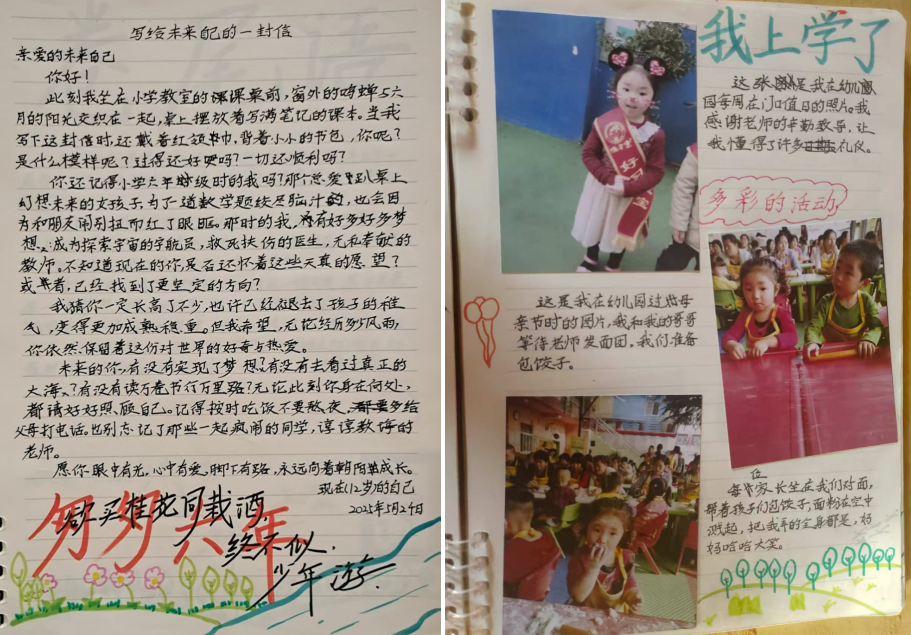 写给未来自己的一封信
亲爱的未来自己
你好！
此刻我坐在小学教室的课桌前，窗外的鸣蝉与六
月的阳光交织在一起，桌上摆放着写满笔记的课本。当我
写下这封信时，还戴着红领巾，背着小小的书包，你呢？
是什么模样呢？过得还好吗？一切还顺利吗？
你还记得小学六年级时的我吗？那个总爱趴桌上
幻想未来的女孩子，为了一道数学题绞尽脑汁的，也会因
为和朋友闹别扭而红了眼眶。那时的我，有好多好多梦
想，成为探索宇宙的宇航员，救死扶伤的医生，无私奉献的
教师。不知道现在的你是否还怀着这些天真的愿望？
或者，已经找到了更坚定的方向？
我猜你一定长高了不少，也许已经褪去了孩子的稚
气，变得更加成熟稳重。但我希望，无论经历多少风雨，
你依然保留着这份对世界的好奇与热爱。
未来的你，有没有实现了梦想？有没有去看过真正的
大海？有没有读万卷书行万里路？无论此刻你身在何处，
都请好好照顾自己。记得按时吃饭不要熬夜，多给
父母打电话。也别忘记了那些一起疯闹的同学，谆谆教诲的
老师。
愿你眼中有光，心中有爱，脚下有路，永远向着朝阳成长。
现在12岁的自己
2025年5月29日
匆匆六年
欲买桂花同载酒，
终不似，
少年游
我上学了
这张是我在幼儿
园每周在门口值日的照片。我
感谢老师的辛勤教导，让
我懂得了许多礼仪。
多彩的活动
这是我在幼儿园过母
亲节时的图片，我和我的哥哥
等待老师发面团，我们准备
包饺子。
每位家长坐在我们对面，
帮着孩子们包饺子，面粉在空中
溅起，把我弄的全身都是，妈
妈哈哈大笑。